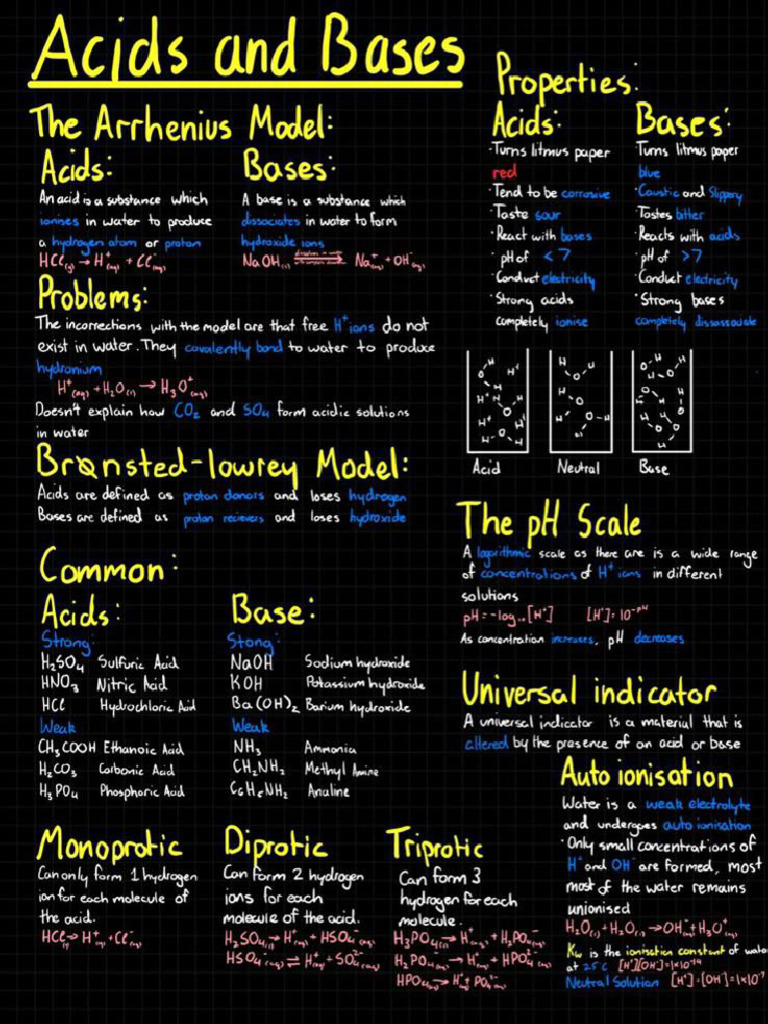 Acids and Bases
The Arrhenius Model:
Acids:
An acid is a substance which
ionises in water to produce
a hydrogen atom or proton
HCl(g) → H⁺(aq) + Cl⁻(aq)
Bases:
A base is a substance which
dissociates in water to form
hydroxide ions
NaOH(s) Na⁺(aq) + OH⁻(aq)
Problems:
The incorrections with the model are that free H⁺ ions do not
exist in water. They covalently bond to water to produce
hydronium
H⁺(aq) + H₂O(l) → H₃O⁺(aq)
Doesn't explain how CO₂ and SO₄ form acidic solutions
in water
Brønsted-lowrey Model:
Acids are defined as proton donors and loses hydrogen
Bases are defined as proton recievers and loses hydroxide
Common:
Acids:
Strong:
H₂SO₄ Sulfuric Acid
HNO₃ Nitric Acid
HCl Hydrochloric Acid
Weak
CH₃COOH Ethanoic Acid
H₂CO₃ Carbonic Acid
H₃PO₄ Phosphoric Acid
Base:
Stong:
NaOH Sodium hydroxide
KOH Potassium hydroxide
Ba(OH)₂ Barium hydroxide
Weak
NH₃ Ammonia
CH₂NH₂ Methyl Amine
C₆H₅NH₂ Analine
Monoprotic
Can only form 1 hydrogen
ion for each molecule of
the acid.
HCl → H⁺(aq) + Cl⁻(aq)
Diprotic
Can form 2 hydrogen
ions for each
molecule of the acid.
H₂SO₄(l) → H⁺(aq) + HSO₄⁻(aq)
HSO₄⁻(aq) ⇌ H⁺(aq) + SO₄²⁻(aq)
Triprotic
Can form 3
hydrogen for each
molecule.
H₃PO₄(l) → H⁺(aq) + H₂PO₄⁻(aq)
H₂PO₄⁻(aq) → H⁺(aq) + HPO₄²⁻(aq)
HPO₄²⁻(aq) → H⁺ + PO₄³⁻(aq)
Properties:
Acids:
·Turns litmus paper
red
·Tend to be corrosive
·Taste sour
·React with bases
·pH of <7
·Conduct electricity
·Strong acids
completely ionise
Bases:
Turns litmus paper
blue
·Caustic and Slippery
·Tastes bitter
·Reacts with acids
·pH of >7
·Conduct electricity
·Strong bases
completely dissassociate
Acid Neutral Base
The pH Scale
A logarithmic scale as there are is a wide range
of concentrations of H⁺ ions in different
solutions
pH = -log₁₀[H⁺] [H⁺] = 10⁻ᵖᴴ
As concentration increases, pH decreases
Universal indicator
A universal indicator is a material that is
altered by the presence of an acid or base
Auto ionisation
Water is a weak electrolyte
and undergoes auto ionisation
·Only small concentrations of
H⁺ and OH⁻ are formed, most
most of the water remains
unionised
H₂O(l) + H₂O(l) → OH⁻(aq) + H₃O⁺(aq)
Kw is the ionisation constant of water
at 25°C [H⁺][OH⁻] = 1×10⁻¹⁴
Neutral Solution [H⁺] = [OH⁻] = 1×10⁻⁷